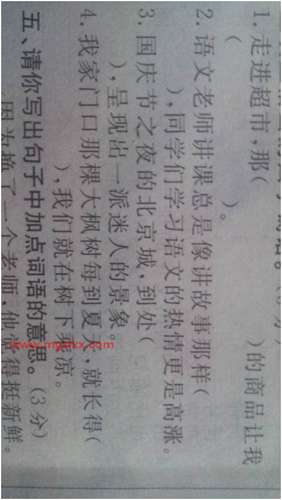 1.走进超市,那(　　)的商品让我
(　　)。
2.语文老师讲课总是像讲故事那样(
),同学们学习语文的热情更是高涨。
3.国庆节之夜的北京城,到处(
),呈现出一派迷人的景象。
4.我家门口那棵大枫树每到夏天,就长得(
),我们就在树下乘凉。
五、请你写出句子中加点词语的意思。(3分)
因为换了一个老师,他觉得挺新鲜。